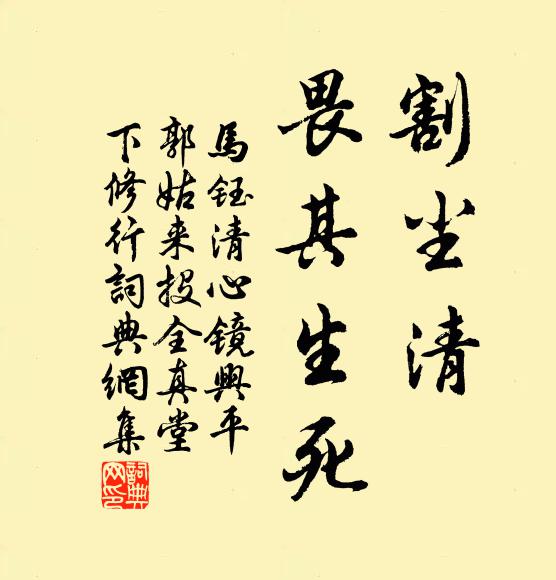 割尘清
畏其生死
馬鈺清心镜興平
郭姑来投全真堂
下修行詞典網集
詞典网印